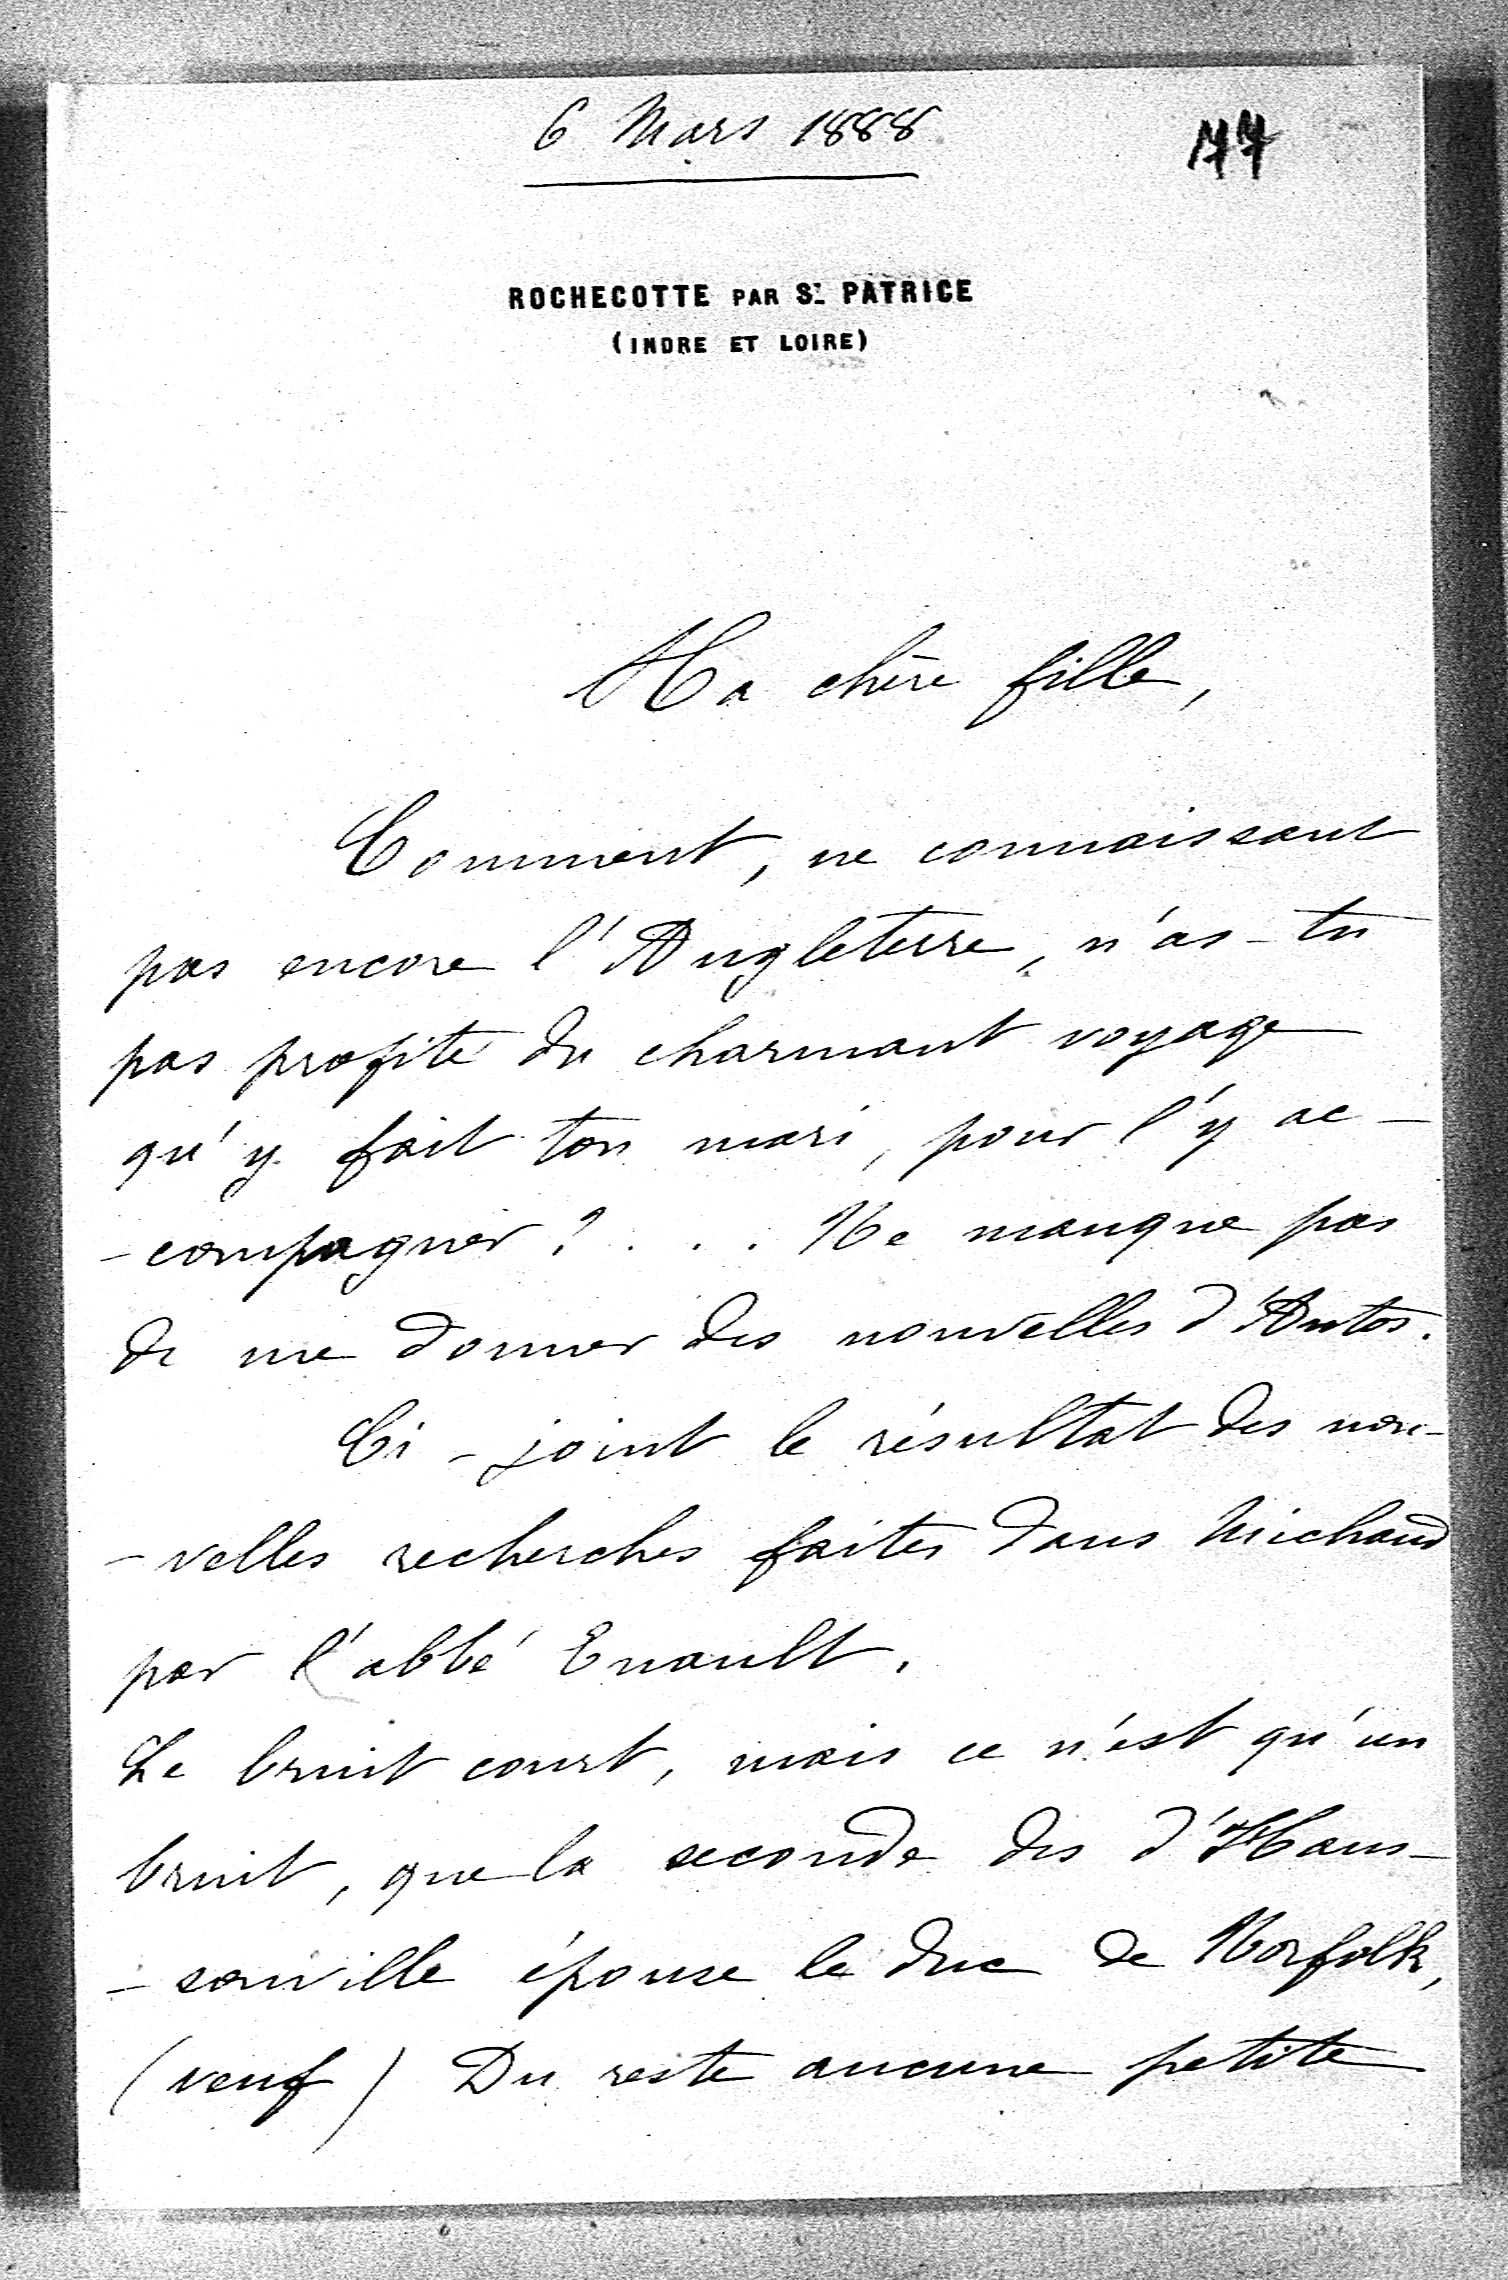 6 Mars 1888
77
ROCHECOTTE PAR St PATRICE
(INDRE ET LOIRE)
Ma chère fille,
Comment, ne connaissant
pas encore l'Angleterre, n'as-tu
pas profité du charmant voyage
qu'y fait ton mari, pour l'y ac-
-compagner ? . . . Ne manque pas
de me donner des nouvelles d'Antos.
Ci-joint le résultat des nou-
-velles recherches faites dans Michaud
par l'abbé Enault.
Le bruit court, mais ce n'est qu'un
bruit, que la seconde des d'Haus-
-sonville épouse le duc de Norfolk,
(veuf) Du reste aucune petite